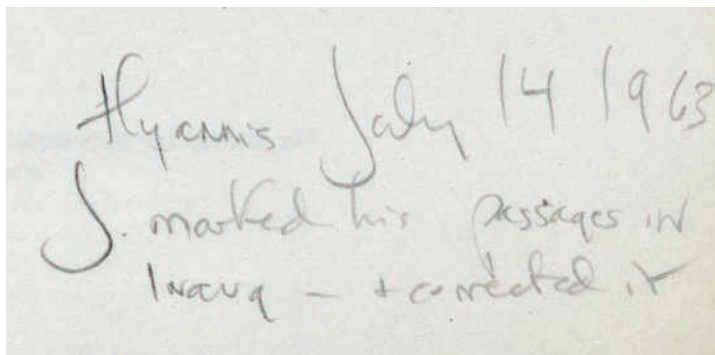 Hyannis July 14 1963
J. marked his passages in
— + corrected it